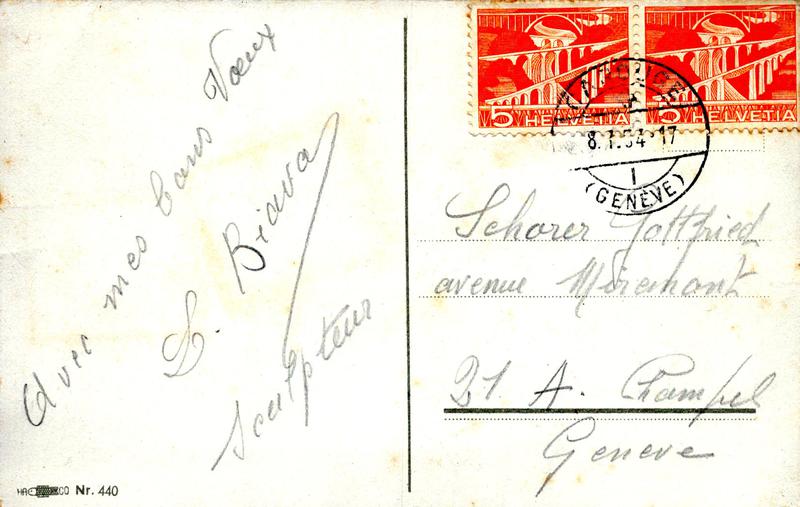 Avec mes bons Vœux
L. Biava
Sculpteur
5 HELVETIA
5 HELVETIA
8.1.54-17
1
(GENÈVE)
Schorer Gottfried
avenue Miremont
21 A. Champel
Geneve
Nr. 440